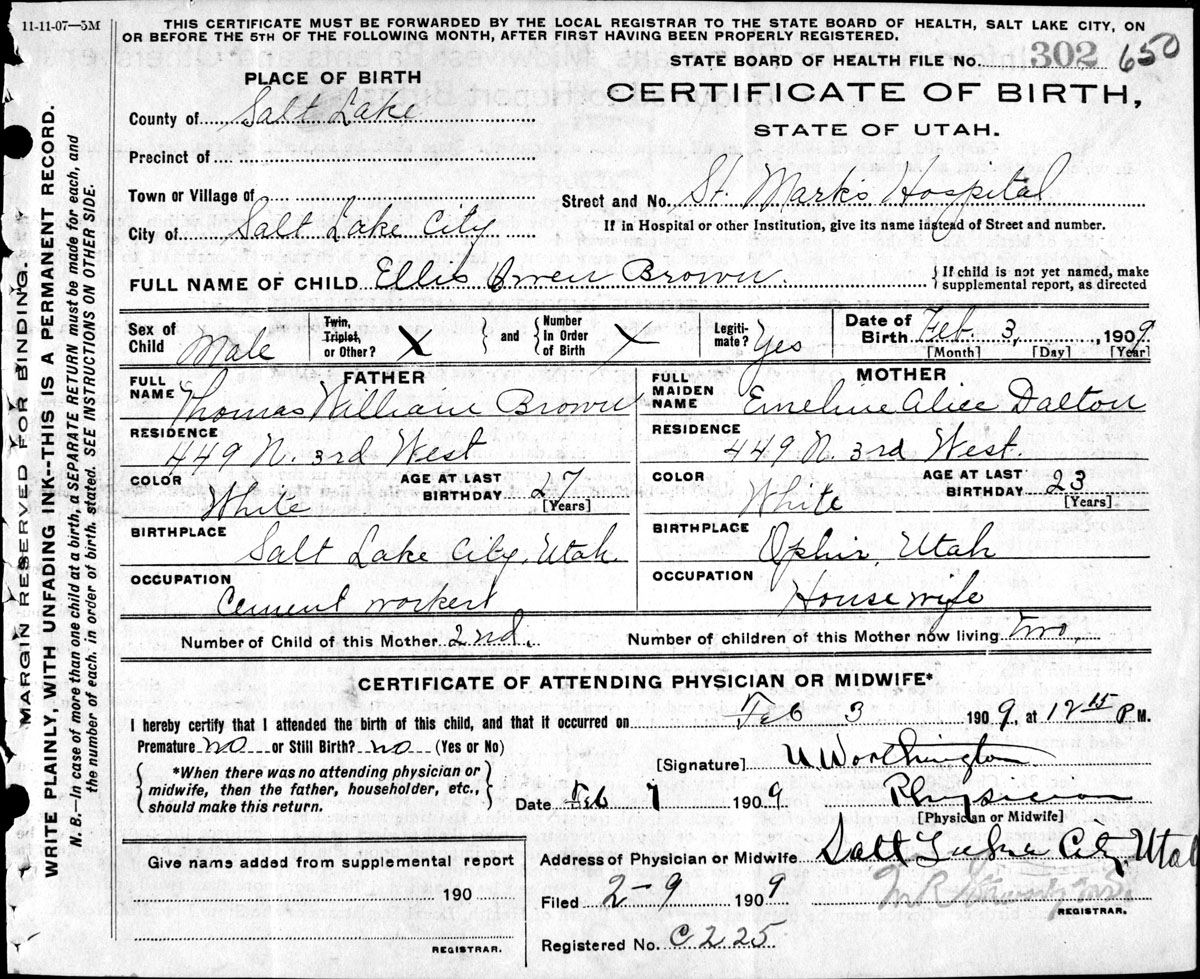 11-11-07—5M
THIS CERTIFICATE MUST BE FORWARDED BY THE LOCAL REGISTRAR TO THE STATE BOARD OF HEALTH, SALT LAKE CITY, ON
OR BEFORE THE 5TH OF THE FOLLOWING MONTH, AFTER FIRST HAVING BEEN PROPERLY REGISTERED.
STATE BOARD OF HEALTH FILE No. 302 650
PLACE OF BIRTH
CERTIFICATE OF BIRTH,
STATE OF UTAH.
County of Salt Lake
Precinct of
Town or Village of
Street and No. St. Mark's Hospital
City of Salt Lake City
If in Hospital or other Institution, give its name instead of Street and number.
FULL NAME OF CHILD Ellis Owen Brown.
If child is not yet named, make
supplemental report, as directed
Sex of Child Male
Twin, Triplet, or Other? X
and
Number In Order of Birth X
Legitimate? Yes
Date of Birth Feb. 3, 1909
[Month] [Day] [Year]
FATHER
FULL NAME Thomas William Brown
RESIDENCE 449 N. 3rd West
COLOR White
AGE AT LAST BIRTHDAY 27 [Years]
BIRTHPLACE Salt Lake City, Utah.
OCCUPATION Cement worker
MOTHER
FULL MAIDEN NAME Emeline Alice Dalton
RESIDENCE 449 N. 3rd West.
COLOR White
AGE AT LAST BIRTHDAY 23 [Years]
BIRTHPLACE Ophir, Utah
OCCUPATION Housewife
Number of Child of this Mother 2nd.
Number of children of this Mother now living two,
CERTIFICATE OF ATTENDING PHYSICIAN OR MIDWIFE*
I hereby certify that I attended the birth of this child, and that it occurred on Feb 3 1909, at 12 15 P M.
Premature no or Still Birth? no (Yes or No)
*When there was no attending physician or
midwife, then the father, householder, etc.,
should make this return.
[Signature] U. Worthington
Date Feb 7 1909
Physician
[Physician or Midwife]
Give name added from supplemental report
190
REGISTRAR.
Address of Physician or Midwife Salt Lake City, Utah
Filed 2-9 1909
REGISTRAR.
Registered No. C225
MARGIN RESERVED FOR BINDING.
WRITE PLAINLY, WITH UNFADING INK--THIS IS A PERMANENT RECORD.
N. B.—In case of more than one child at a birth, a SEPARATE RETURN must be made for each, and
the number of each, in order of birth, stated. SEE INSTRUCTIONS ON OTHER SIDE.